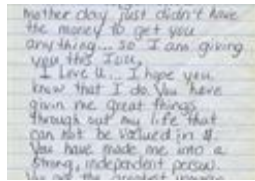 mother day just didn't have
the money to get you
anything... so I am giving
you this
I Love U... I hope you
know that I do. You have
givin me great things
through out my life that
can not be valued in $.
You have made me into a
strong, independent person.
the greatest